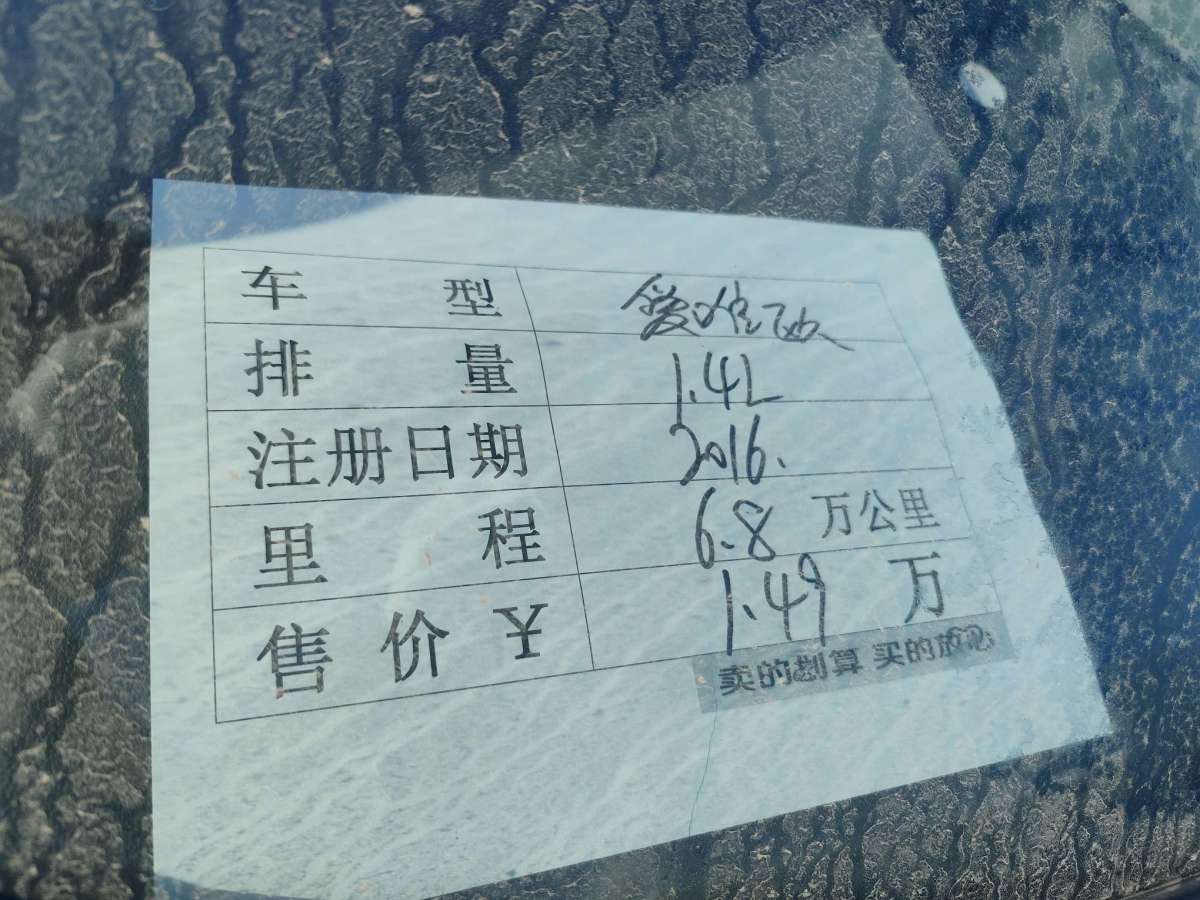 车型 爱唯欧
排量 1.4L
注册日期 2016.
里程 6.8 万公里
售价¥ 1.49 万
卖的划算 买的放心